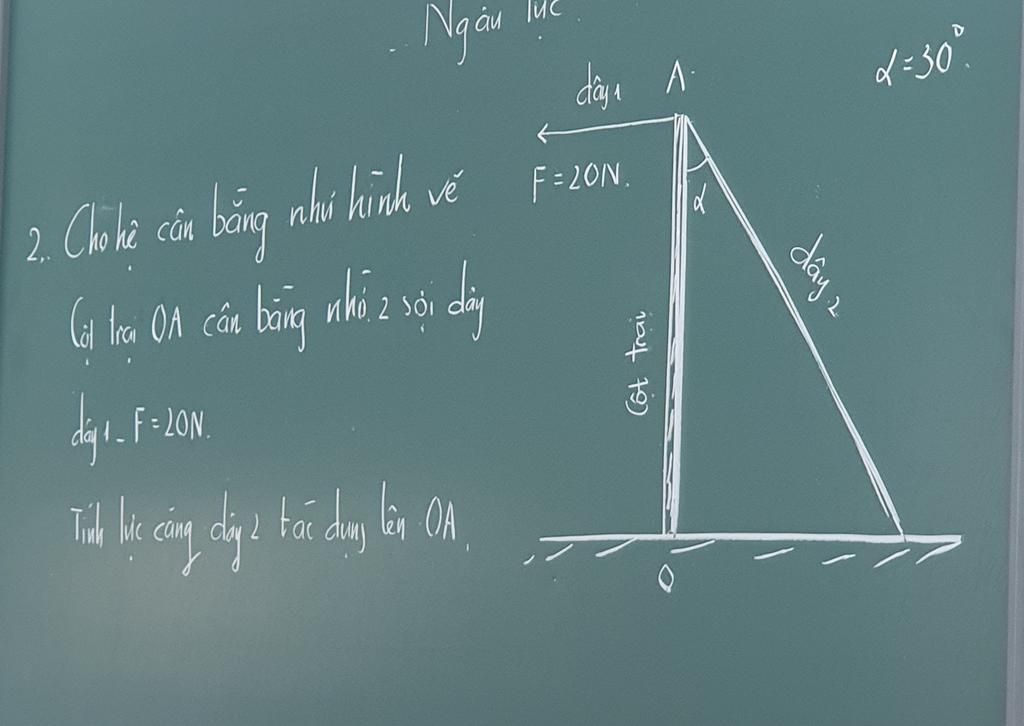 Ngẫu lực.
2. Cho hệ cân bằng như hình vẽ
Cột trại OA cân bằng nhờ 2 sợi dây
dây 1 - F = 20N.
Tính lực căng dây 2 tác dụng lên OA.
α = 30°.
dây 1
A
F = 20N.
α
dây 2
Cột trại
O